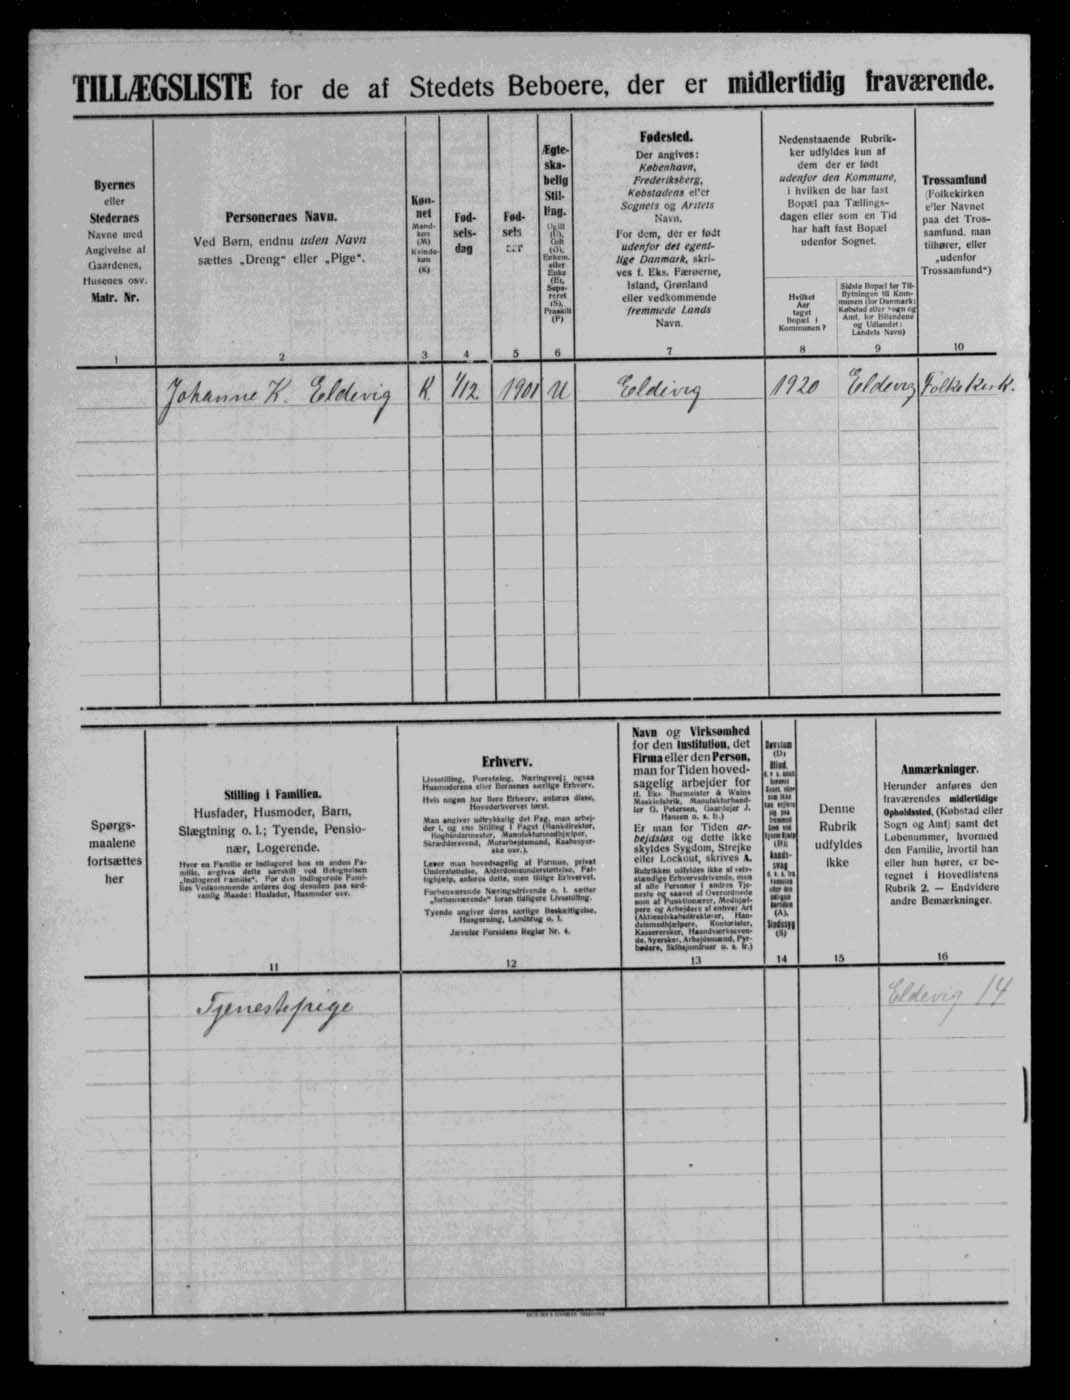 TILLÆGSLISTE for de af Stedets Beboere, der er midlertidig fraværende.
Byernes
eller
Stedernes
Navne med
Angivelse af
Gaardenes,
Husenes osv.
Matr. Nr.
1
Personernes Navn.
Ved Børn, endnu uden Navn
sættes „Dreng" eller „Pige".
2
Køn-
net
Mand-
køn
(M)
Kvinde-
køn
(K)
3
Fød-
sels-
dag
4
Fød-
sels
aar
5
Ægte-
ska-
belig
Stil-
ling.
Ugift
(U),
Gift
(G),
Enkem.
eller
Enke
(E),
Sepa-
reret
(S),
Fraskilt
(F)
6
Fødested.
Der angives:
København,
Frederiksberg,
Købstadens eller
Sognets og Amtets
Navn.
For dem, der er født
udenfor det egent-
lige Danmark, skri-
ves f. Eks. Færøerne,
Island, Grønland
eller vedkommende
fremmede Lands
Navn.
7
Nedenstaaende Rubrik-
ker udfyldes kun af
dem der er født
udenfor den Kommune,
i hvilken de har fast
Bopæl paa Tællings-
dagen eller som en Tid
har haft fast Bopæl
udenfor Sognet.
Hvilket
Aar
taget
Bopæl i
Kommunen?
8
Sidste Bopæl før Til-
flytningen til Kom-
munen (for Danmark:
Købstad eller Sogn og
Amt, for Bilandene
og Udlandet:
Landets Navn)
9
Trossamfund
(Folkekirken
eller Navnet
paa det Tros-
samfund, man
tilhører, eller
„udenfor
Trossamfund")
10
Johanne K. Eldevig K. 1/12 1901 U Eldevig 1920 Eldevig Folkekirk.
Spørgs-
maalene
fortsættes
her
Stilling i Familien.
Husfader, Husmoder, Barn,
Slægtning o. l.; Tyende, Pensio-
nær, Logerende.
Hver en Familie er indlogeret hos en anden Fa-
milie, angives dette særskilt ved Betegnelsen
„Indlogeret Familie". For den indlogerede Fami-
lies Vedkommende anføres dog desuden paa sæd-
vanlig Maade: Husfader, Husmoder osv.
11
Erhverv.
Livsstilling, Forretning, Næringsvej; ogsaa
Husmoderens eller Børnenes særlige Erhverv.
Hvis nogen har flere Erhverv, anføres disse,
Hovederhvervet først.
Man angiver udtrykkelig det Fag, man arbej-
der i, og ens Stilling i Faget (Bankdirektør,
Bogbindermester, Manufakturmedhjælper,
Skræddersvend, Murarbejdsmand, Kaabesyer-
ske osv.).
Lever man hovedsagelig af Formue, privat
Understøttelse, Alderdomsunderstøttelse, Fat-
tighjælp, anføres dette, men tillige Erhvervet.
Forhenværende Næringsdrivende o. l. sætter
„forhenværende" foran tidligere Livsstilling.
Tyende angiver deres særlige Beskæftigelse,
Husgerning, Landbrug o. l.
Jævnfør Forsidens Regler Nr. 4.
12
Navn og Virksomhed
for den Institution, det
Firma eller den Person,
man for Tiden hoved-
sagelig arbejder for
(f. Eks. Burmeister & Wains
Maskinfabrik, Manufakturhand-
ler G. Petersen, Gaardejer J.
Hansen o. s. fr.)
Er man for Tiden ar-
bejdsløs og dette ikke
skyldes Sygdom, Strejke
eller Lockout, skrives A.
Rubrikken udfyldes ikke af selv-
stændige Erhvervsdrivende, men
af alle Personer i andres Tje-
neste og saavel af Overordnede
som af Funktionærer, Medhjæl-
pere og Arbejdere af enhver Art
(Aktieselskabsdirektører, Han-
delsmedhjælpere, Kontorister,
Kassererksker, Haandværkssven-
de, Syersker, Arbejdsmænd, Fyr-
bødere, Skibsjomfruer o. s. fr.)
13
Døvstum
(D)
Blind,
Aands-
svag
(A),
Sindssyg
(S)
14
Denne
Rubrik
udfyldes
ikke
15
Anmærkninger.
Herunder anføres den
fraværendes midlertidige
Opholdssted, (Købstad eller
Sogn og Amt) samt det
Løbenummer, hvormed
den Familie, hvortil han
eller hun hører, er be-
tegnet i Hovedlistens
Rubrik 2. — Endvidere
andre Bemærkninger.
16
Tjenestepige Eldevig 14